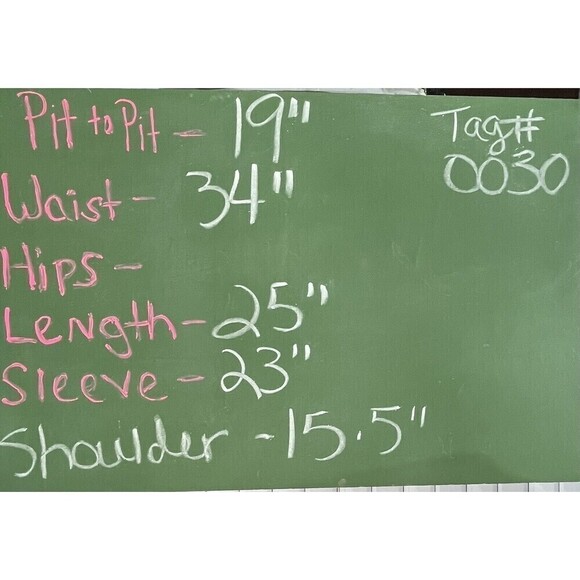 Pit to Pit - 19"
Tag#
0030
Waist - 34"
Hips -
Length - 25"
Sleeve - 23"
Shoulder - 15.5"